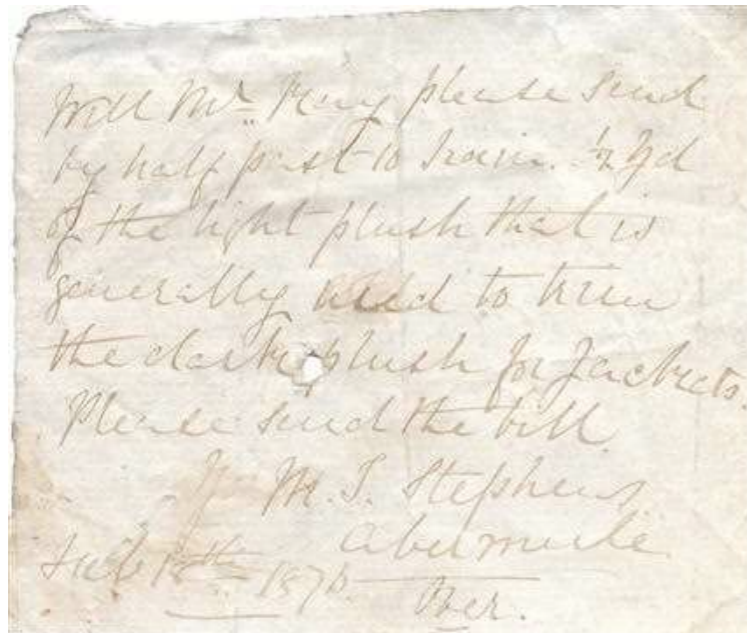 Will Mr. Pryce please send
by half past 10 train. ½ yd
of the light plush that is
generally used to trim
the dark plush for Jackets.
Please send the bill
M. S. Stephens
Abermule
Feb 1876
Over.